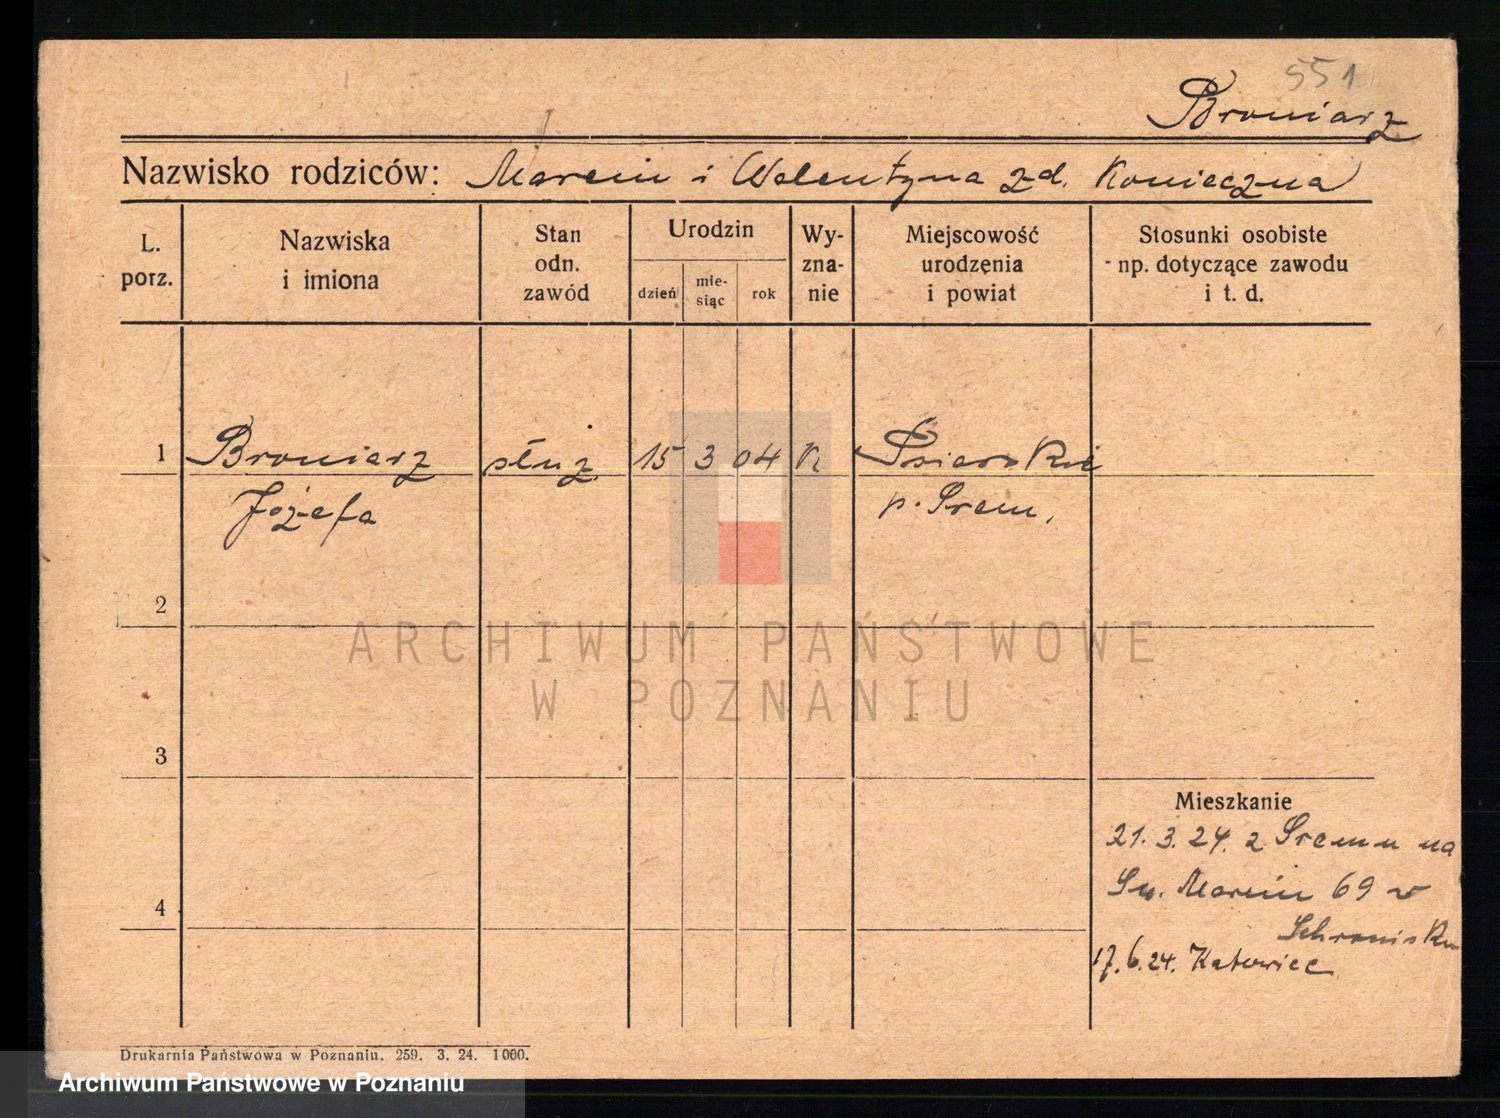 551
Broniarz
Nazwisko rodziców: Marcin i Walentyna z d. Konieczna
L. porz.
Nazwiska i imiona
Stan odn. zawód
Urodzin
dzień
mie-siąc
rok
Wy-zna-nie
Miejscowość urodzenia i powiat
Stosunki osobiste np. dotyczące zawodu i t. d.
1 Broniarz służ. 15 3 04 k Psarskie
Józefa p. Śrem.
2
ARCHIWUM PAŃSTWOWE
W POZNANIU
3
Mieszkanie
21. 3. 24. z Śremu na
Św. Marcin 69 w
4
Schronisku
17. 6. 24. Katowice
Drukarnia Państwowa w Poznaniu. 259. 3. 24. 1000.
Archiwum Państwowe w Poznaniu